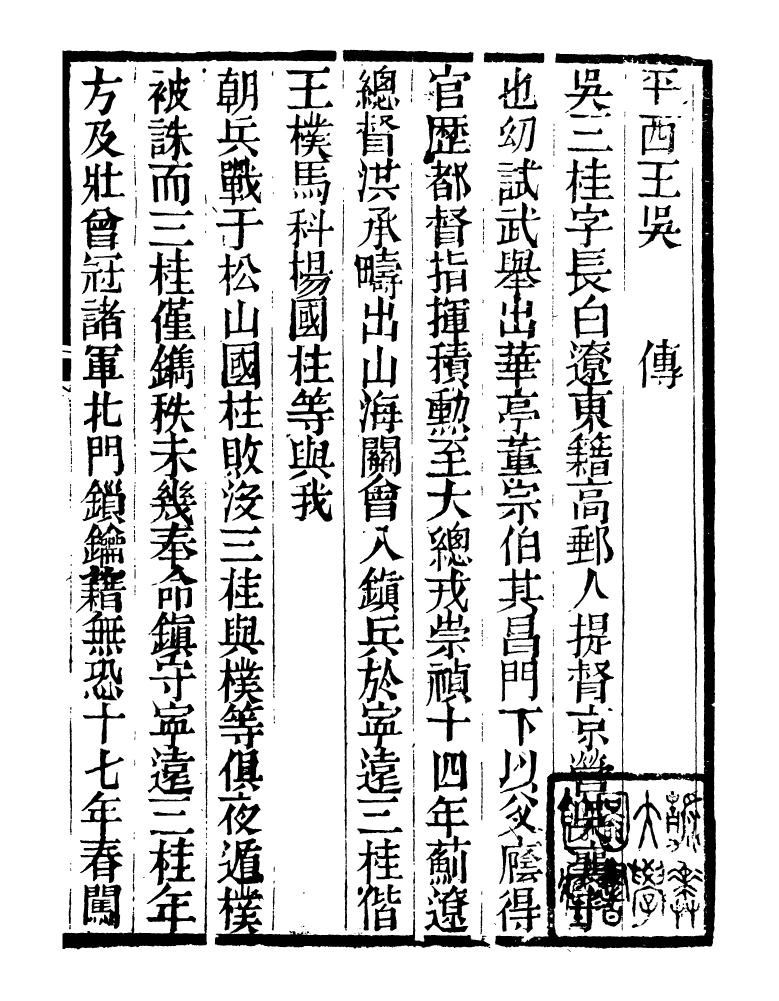 平西王吳　傳
吳三桂字長白遼東籍高郵人提督京營襄子
也幼試武舉出華亭董宗伯其昌門下以父廕得
官歷都督指揮積勳至大總戎崇禎十四年薊遼
總督洪承疇出山海關會八鎮兵於寧遠三桂偕
王樸馬科楊國柱等與我
朝兵戰于松山國柱敗沒三桂與樸等俱夜遁樸
被誅而三桂僅鐫秩未幾奉命鎮守寧遠三桂年
方及壯曾冠諸軍北門鎖鑰藉無恐十七年春闖